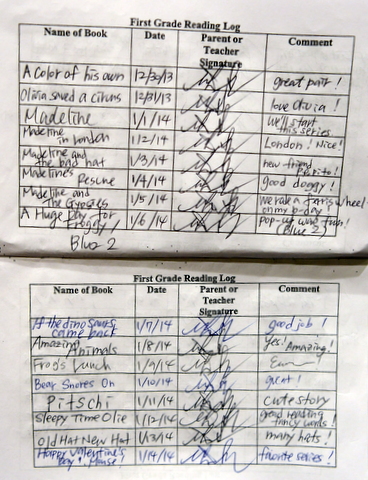 First Grade Reading Log
Name of Book Date Parent or Teacher Signature Comment
A color of his own 12/30/13 great pair!
Olivia saved a circus 12/31/13 love Olivia!
Madeline 1/1/14 we'll start this series
Madeline in London 1/2/14 London! Nice!
Madeline and the bad hat 1/3/14 new friend Pepito!
Madeline's Rescue 1/4/14 good doggy!
Madeline and the Gypsies 1/5/14 we rode a Ferris wheel on my b-day!
A Huge Day for Froggy! 1/6/14 Pop-out was fun! (Blue 2)
Blue 2
First Grade Reading Log
Name of Book Date Parent or Teacher Signature Comment
If the dinosaurs came back 1/7/14 good job!
Amazing Animals 1/8/14 Yes! Amazing!
Frog's Lunch 1/9/14
Bear Snores On 1/10/14 great!
Pitschi 1/11/14 cute story
Sleepy Time Olie 1/12/14 good reading fancy words!
Old Hat New Hat 1/13/14 many hats!
Happy Valentine's Day, Mouse! 1/14/14 favorite series!